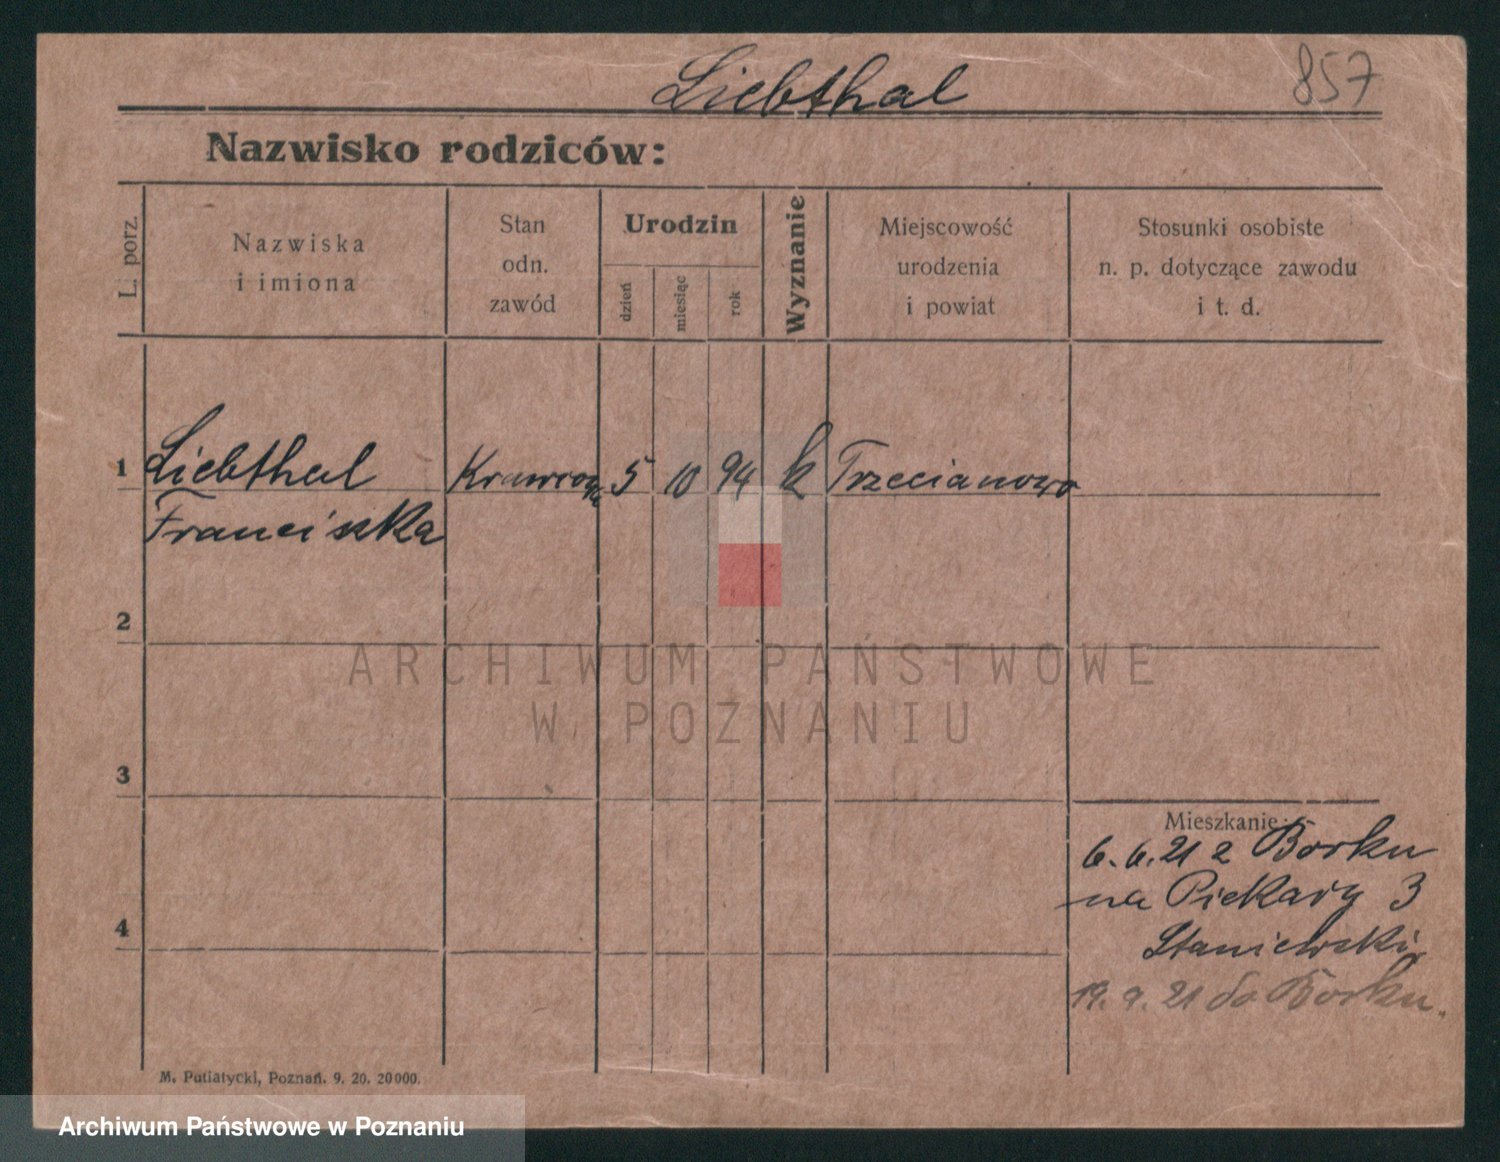 Liebthal
857
Nazwisko rodziców:
L. porz.
Nazwiska
i imiona
Stan
odn.
zawód
Urodzin
dzień
miesiąc
rok
Wyznanie
Miejscowość
urodzenia
i powiat
Stosunki osobiste
n. p. dotyczące zawodu
i t. d.
1
Liebthal
Franciszka
5
10
94
k
Trzecianowo
2
3
4
Mieszkanie:
6.6.21 z Borku
na Piekary 3
Staniewski
19. 9. 21 do Borku.
M. Putiatycki, Poznań. 9. 20. 20000.
ARCHIWUM PAŃSTWOWE
W POZNANIU
Archiwum Państwowe w Poznaniu